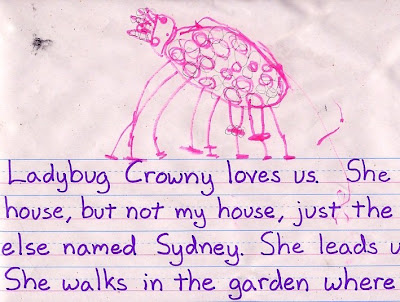 Ladybug Crowny loves us. She
house, but not my house, just the
else named Sydney. She leads u
She walks in the garden where